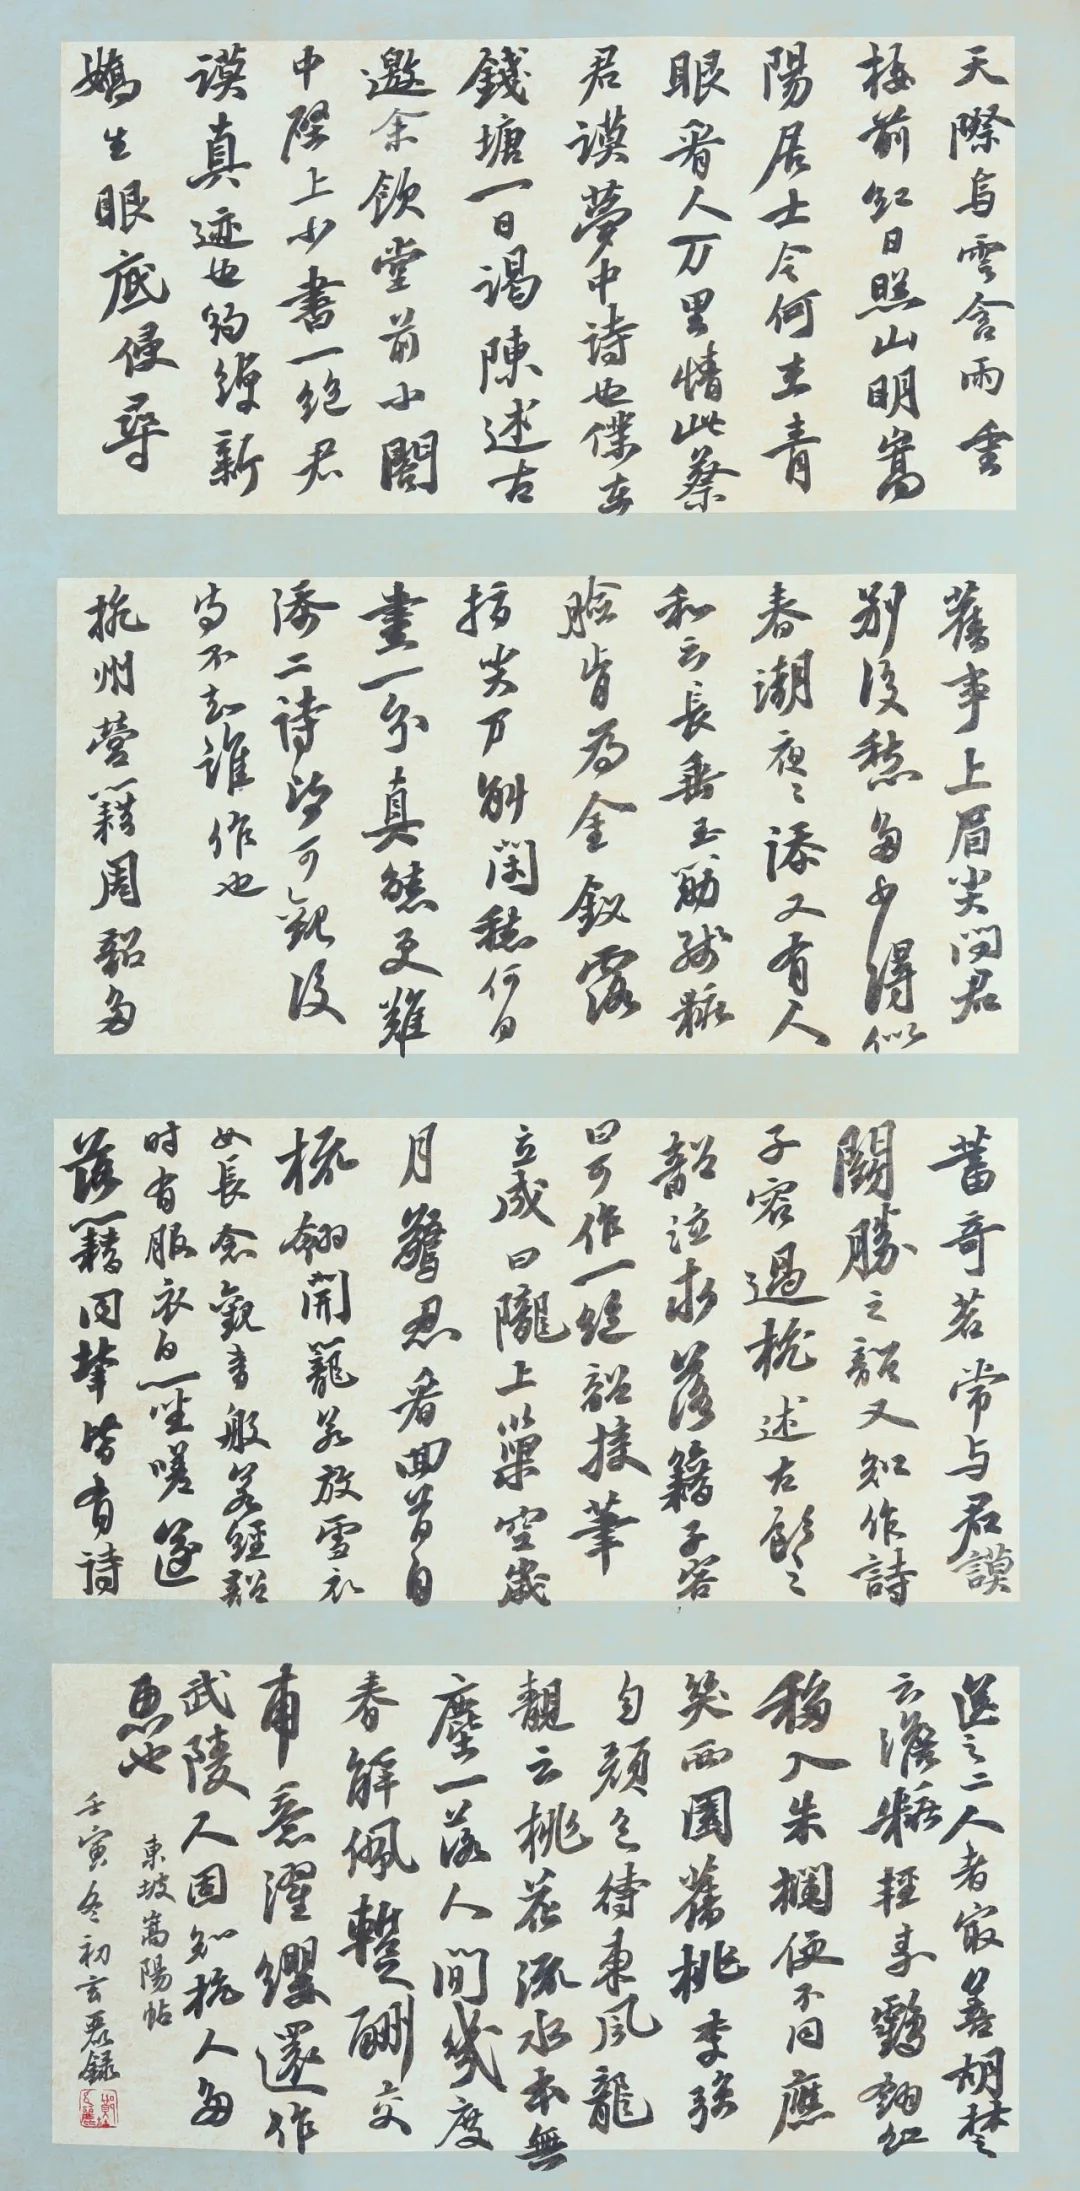 天際烏雲含雨重
樓前紅日照山明嵩
陽居士今何在青
眼看人万里情此蔡
君謨夢中詩也僕在
錢塘一日謁陳述古
邀余飲堂前小閣
中壁上小書一絶君
謨真迹也綽約新
嬌生眼底侵尋
舊事上眉尖問君
別後愁多少得似
春潮夜々添又有人
和云長垂玉筯殘粧
臉肯為金釵露
指尖万斛閑愁何日
盡一分真態更難
添二詩皆可觀後
詩不知誰作也
杭州營籍周韶多
蓄奇茗常与君謨
鬭勝之韶又知作詩
子容過杭述古飲之
韶泣求落籍子容
曰可作一絶韶援筆
立成曰隴上巢空歲
月驚忍看回首自
梳翎開籠若放雪衣
女長念觀音般若經韶
時有服衣白一坐嗟嘆遂
落籍同輩皆有詩
送之二人者最善胡楚
云淡粧輕素鶴翎紅
移入朱欄便不同應
笑西園舊桃李強
勻顏色待東風龍
靚云桃花流水本無
塵一落人間幾度
春解佩暫酬交
甫意濯纓還作
武陵人固知杭人多
惠也
東坡嵩陽帖
壬寅冬初玄晨錄